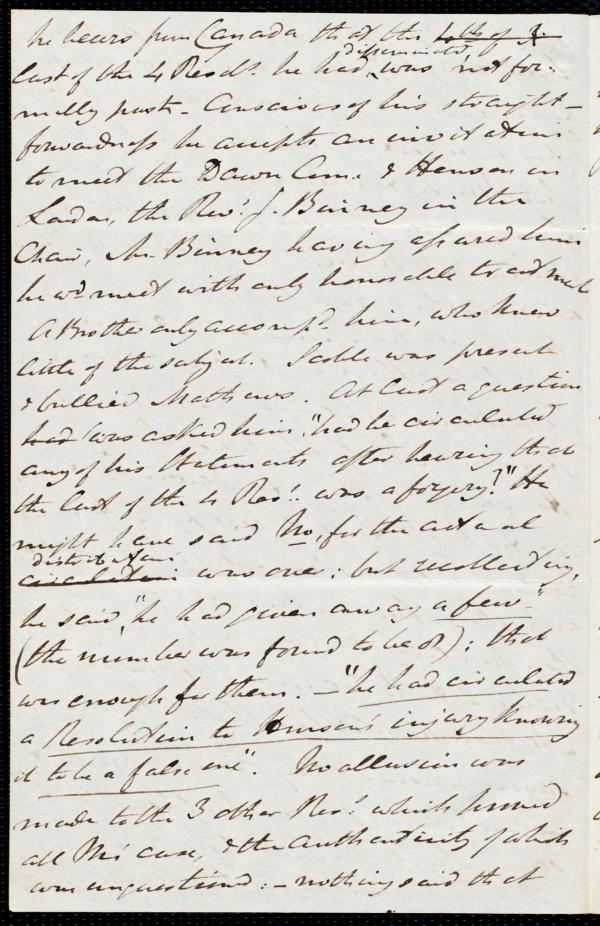 he hears from Canada that the 4th of 3.
last of the 4 Resols. he had disseminated, was not for-
mally past - Conscious of his straight-
forwardness he accepts an invitation
to meet the Dawn Com. & Henson in
London, the Revd. J. Binney in the
Chair, Mr. Binney having assured him
he wd. meet with only honorable treatmt
A Brother only accompd. him, who knew
little of the subject. Scoble was present
& bullied Mathews. At last a question
had was asked him, "had he circulated
any of his Statements after hearing that
the last of the 4 Res. was a forgery?" He
might have said No, for the actual
circulation distribution was over; but recollecting,
he said, "he had given away a few"
(the number was found to be 8); that
was enough for them. - "he had circulated
a Resolution to Henson's injury knowing
it to be a false one". No allusion was
made to the 3 other Res. which formed
all Ms' case, & the authenticity of which
was unquestioned: - nothing said that